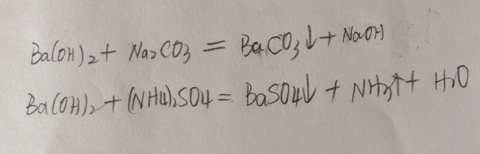 Ba(OH)₂ + Na₂CO₃ = BaCO₃↓ + NaOH
Ba(OH)₂ + (NH₄)₂SO₄ = BaSO₄↓ + NH₃↑ + H₂O